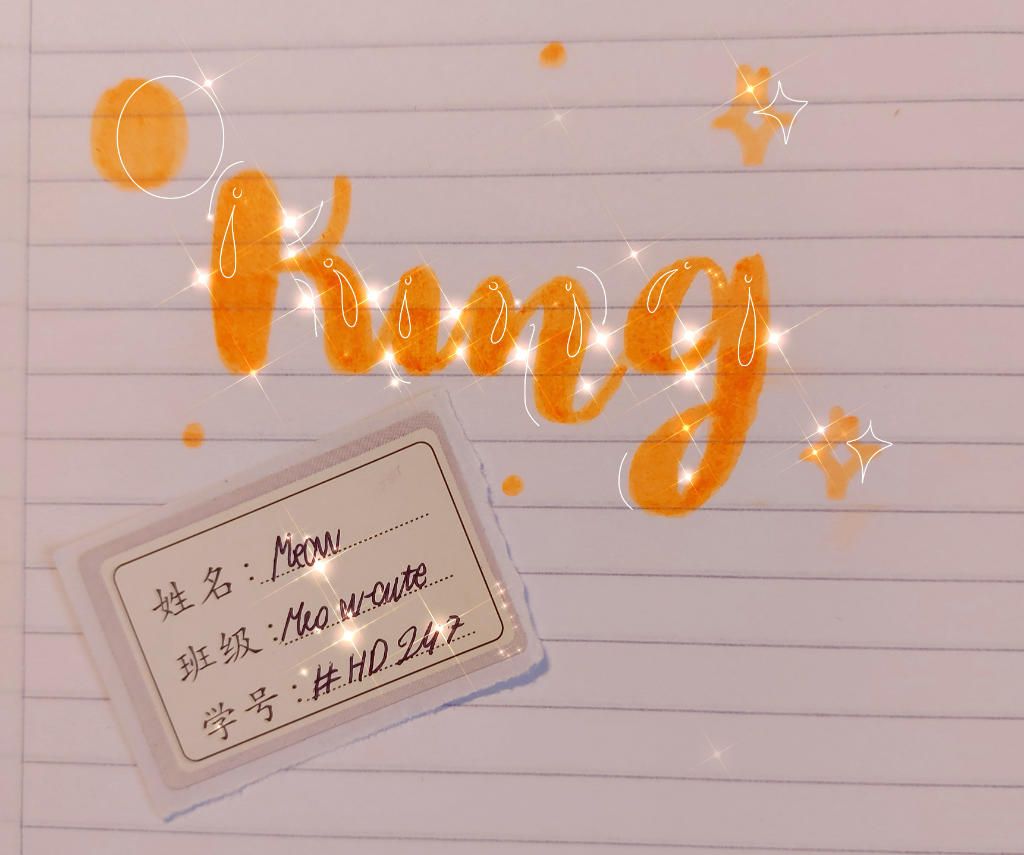 King
姓名：Meow
班级：Meow-cute
学号：#HD 247